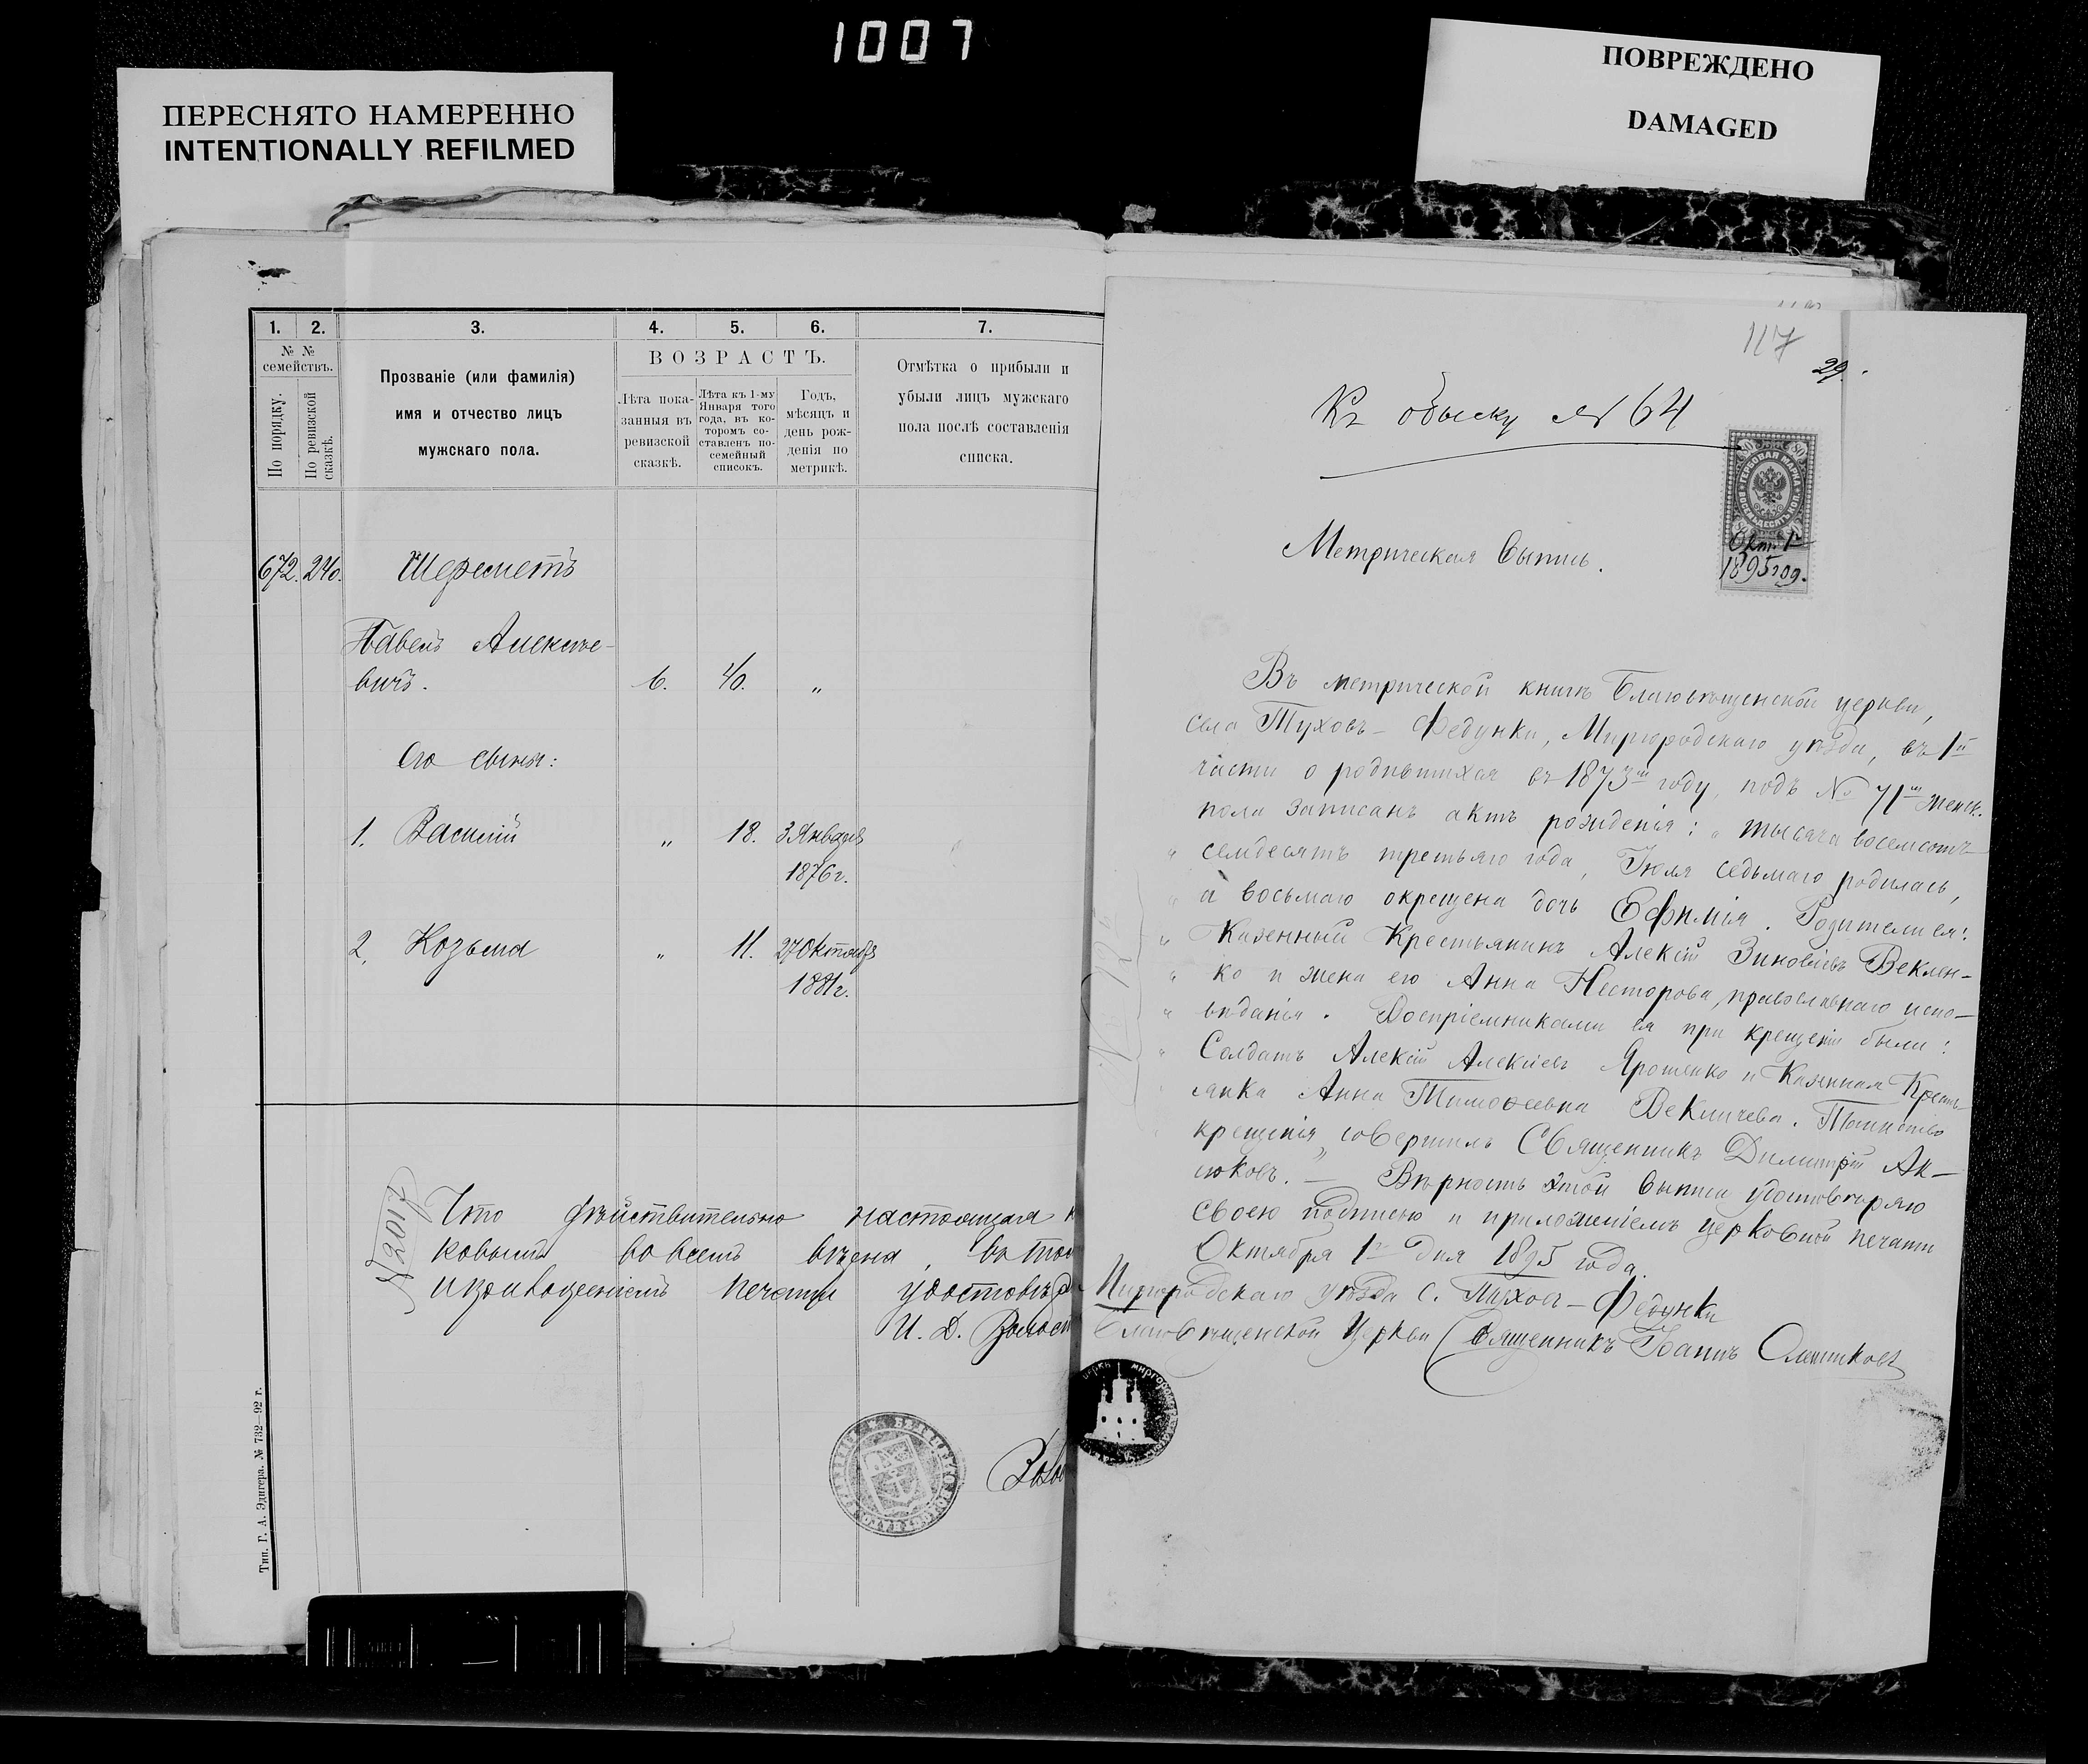 1007
ПЕРЕСНЯТО НАМЕРЕННО
INTENTIONALLY REFILMED
ПОВРЕЖДЕНО
DAMAGED
1. 2. 3. 4. 5. 6. 7.
№ № семействъ.
По порядку.
По ревизской сказкѣ.
Прозваніе (или фамилія)
имя и отчество лицъ
мужскаго пола.
ВОЗРАСТЪ.
Лѣта пока-
занныя въ
ревизской
сказкѣ.
Лѣта къ 1-му
Января того
года, въ ко-
торомъ со-
ставленъ по-
семейный
списокъ.
Годъ,
мѣсяцъ и
день рож-
денія по
метрикѣ.
Отмѣтка о прибыли и
убыли лицъ мужскаго
пола послѣ составленія
списка.
672. 240. Шереметъ
Павелъ Алексѣе-
вичъ. 6. 40. „
Его сынья:
1. Василій „ 18. 3 Января
1876 г.
2. Козьма „ 11. 27 Октября
1881 г.
№ 2017
Что дѣйствительно настоящая к
ковымъ во всемъ вѣрна, въ том
и приложеніемъ печати удостовѣр
И. Д. Волост
Тип. Г. А. Эдигера. № 732—92 г.
117
29.
Къ обыску № 64
ГЕРБОВАЯ МАРКА
80 80
Окт. 1
1895 год.
Метрическая выпись.
Въ метрической книгѣ Благовѣщенской церкви,
села Туховъ-Федунки, Миргородскаго уѣзда, въ 1й
части о родившихся въ 1873мъ году, подъ № 71мъ женск.
пола записанъ актъ рожденія: „тысяча восемсотъ
„ семдесятъ третьяго года, Іюля седьмаго родилась,
„ а восьмаго окрещена дочь Ефимія. Родители ея:
„ Казенный Крестьянинъ Алексій Зиновіевъ Веклен-
„ ко и жена его Анна Несторова, православнаго испо-
„ вѣданія. Воспріемниками ея при крещеніи были:
„ Солдатъ Алексій Алексіевъ Ярошенко и Казенная Кресть-
янка Анна Тимоѳеевна Векличева. Таинство
крещенія„ совершилъ Священникъ Димитрій Ак-
сюковъ. — Вѣрность этой выписи удостовѣряю
своею подписью и приложеніемъ церковной печати
Октября 1го дня 1895 года.
Миргородскаго уѣзда с. Туховъ-Федунки
Благовѣщенской Церкви Священникъ Іоаннъ